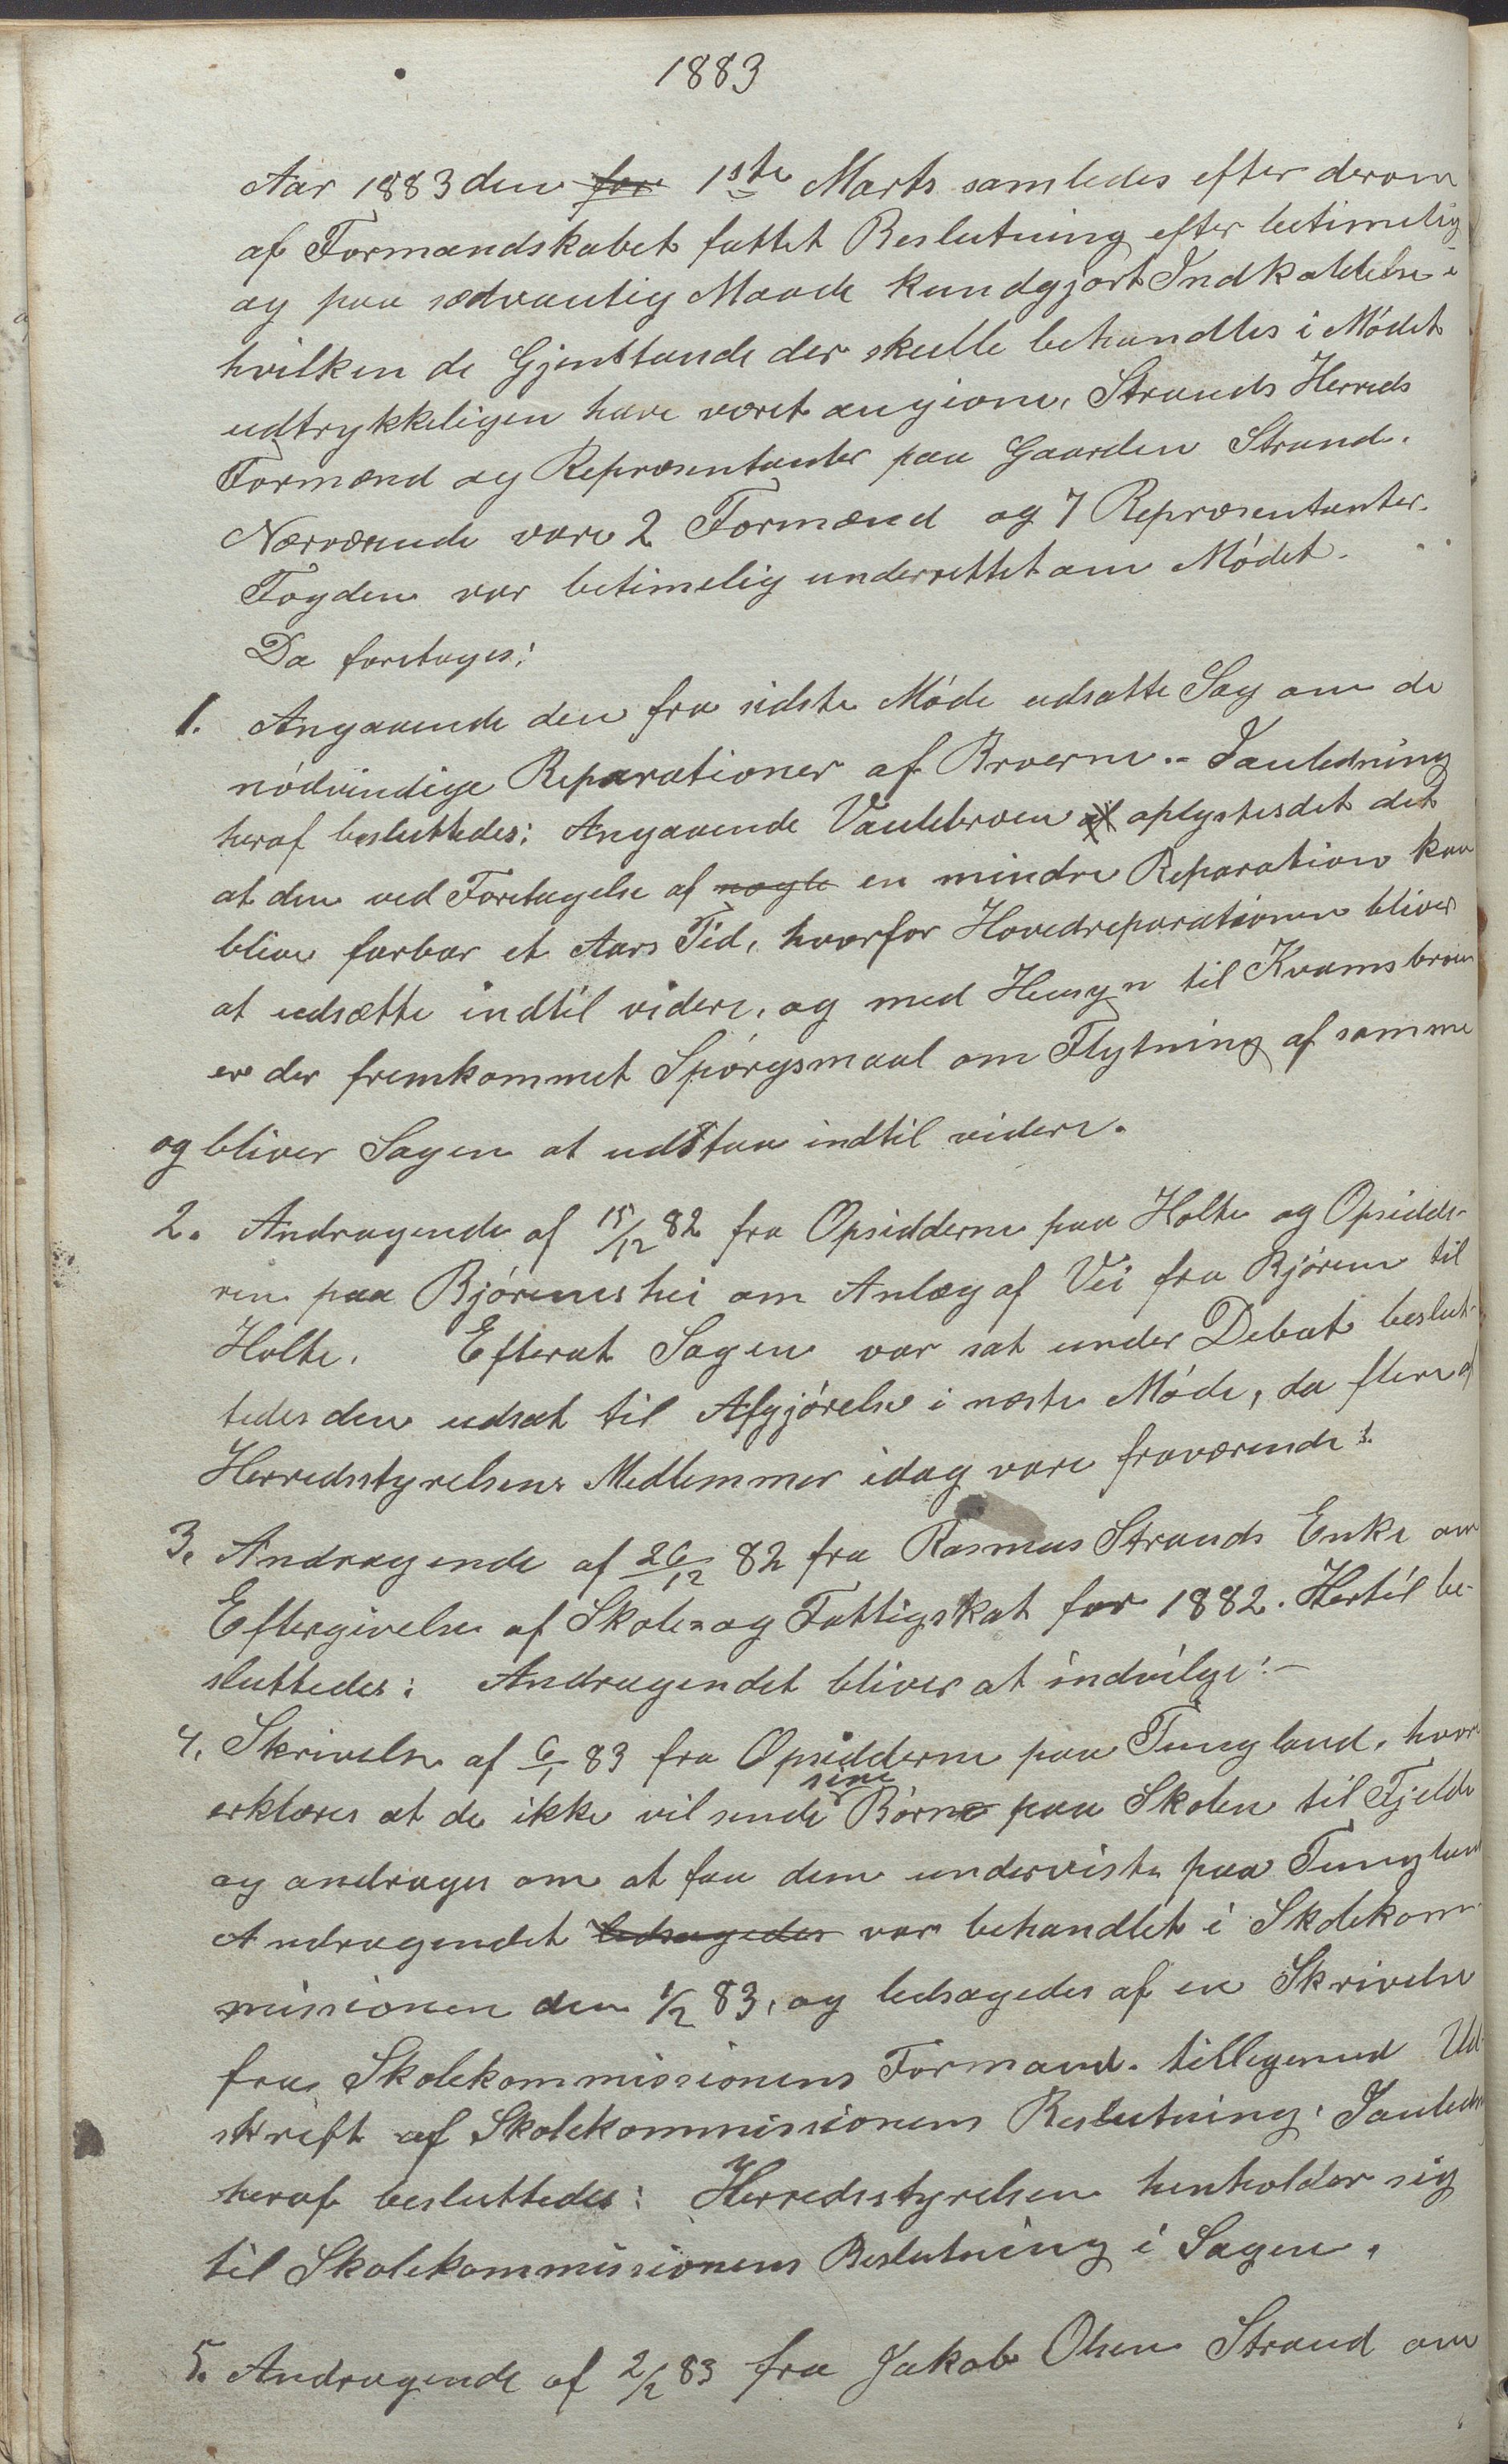 1883
Aar 1883 den for 1ste Marts samledes efter derom
af Formandskabet fattet Beslutning efter betimelig
og paa sædvanlig Maade kundgjort Indkaldelse i
hvilken de Gjenstande der skulle behandles i Mødet
udtrykkeligen have været angivne, Strands Herreds
Formænd og Repræsentanter paa Gaarden Strand.
Nærværende vare 2 Formænd og 7 Repræsentanter.
Fogden var betimelig underrettet om Mødet.
Da foretages:
1. Angaaende den fra sidste Møde udsatte Sag om de
nødvendige Reparationer af Broerne. - I anledning
heraf besluttedes: Angaaende Vaulebroen oplystes det det
at den ved Foretagelse af nogle en mindre Reparation kan
blive farbar et Aars Tid, hvorfor Hovedreparationen bliver
at udsætte indtil videre, og med Hensyn til Kvamsbroen
er der fremkommet Spørgsmaal om Flytning af samme
og bliver Sagen at udstaa indtil videre.
2. Andragende af 15/12 82 fra Opsidderne paa Holte og Opsidde-
ren paa Bjøreneshei om Anlæg af Vei fra Bjøren til
Holte. Efterat Sagen var sat under Debat beslut-
tedes den udsat til Afgjørelse i næste Møde, da flere af
Herredsstyrelsens Medlemmer idag vare fraværende.
3. Andragende af 26/12 82 fra Rasmus Strands Enke om
Eftergivelse af Skole- og Fattigskat for 1882. Hertil be-
sluttedes: Andragendet bliver at indvilge. -
4. Skrivelse af 6/1 83 fra Opsidderne paa Tungland, hvori
sine
erklæres at de ikke vil sende Børne paa Skolen til Fjelde
og andrager om at faa dem underviste paa Tungland
Andragendet ledsagedes var behandlet i Skolekom-
missionen den 1/2 83, og ledsagedes af en Skrivelse
fra Skolekommissionens Formand tilligemed Ud-
skrift af Skolekommissionens Beslutning. I anledn
heraf besluttedes: Herredsstyrelsen henholder sig
til Skolekommissionens Beslutning i Sagen.
5. Andragende af 2/2 83 fra Jakob Olsen Strand om